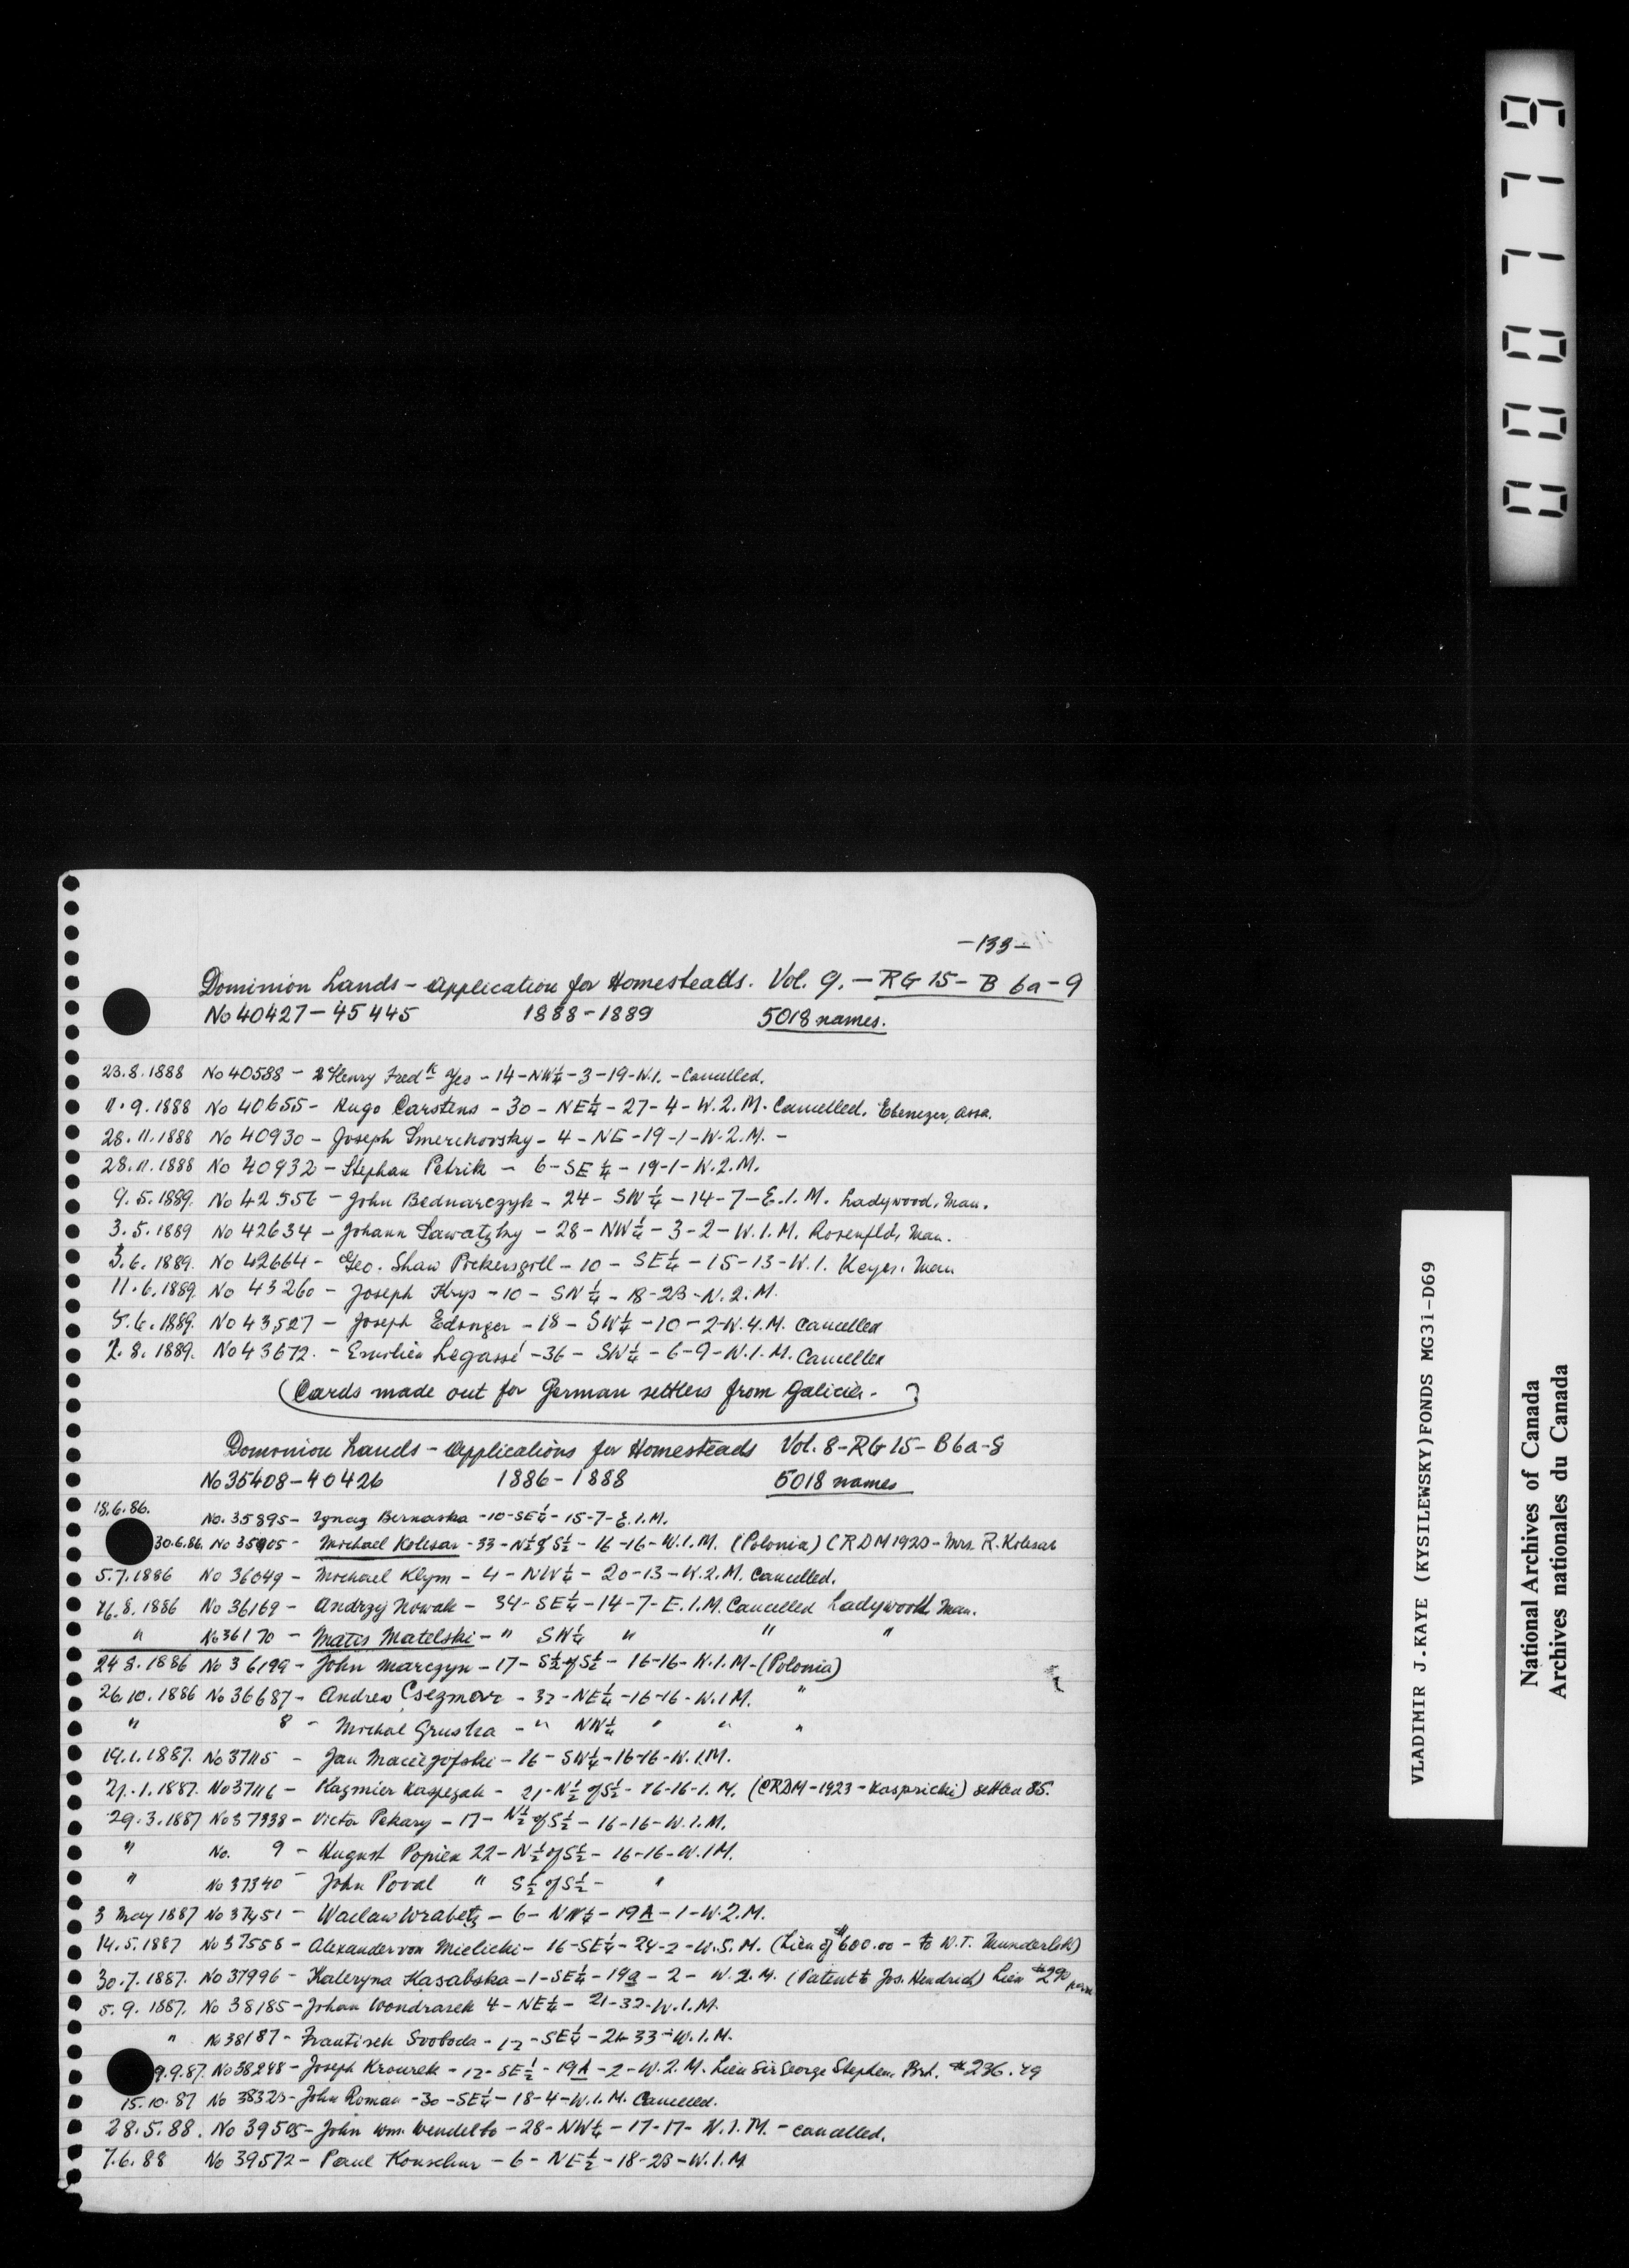 -133-
Dominion Lands - Application for Homesteads. Vol. 9. - RG 15 - B 6a - 9
No 40427 - 45445 1888 - 1889 5018 names.
23.8.1888 No 40588 - Henry Fredk Yeo - 14 - NW¼ - 3 - 19 - W.1. - Cancelled.
11.9.1888 No 40655 - Hugo Carstens - 30 - NE¼ - 27 - 4 - W.2.M. Cancelled. Ebenezer, Assa.
28.11.1888 No 40930 - Joseph Smerchovsky - 4 - NE - 19 - 1 - W.2.M. -
28.11.1888 No 40932 - Stephan Petrik - 6 - SE¼ - 19 - 1 - W.2.M.
9.5.1889. No 42556 - John Bednarczyk - 24 - SW¼ - 14 - 7 - E.1.M. Ladywood, Man.
3.5.1889 No 42634 - Johann Sawatzky - 28 - NW¼ - 3 - 2 - W.1.M. Rosenfld, Man.
3.6.1889. No 42664 - Geo. Shaw Pickersgill - 10 - SE¼ - 15 - 13 - W.1. Keyes. Man
11.6.1889. No 43260 - Joseph Krys - 10 - SW¼ - 18 - 23 - W.2.M.
5.6.1889. No 43527 - Joseph Edinger - 18 - SW¼ - 10 - 2 - W.4.M. Cancelled
7.8.1889. No 43672. - Emilien Legassé - 36 - SW¼ - 6 - 9 - W.1.M. Cancelled
(Cards made out for German settlers from Galicia. - )
Dominion Lands - Applications for Homesteads Vol. 8 - RG 15 - B 6a - 8
No 35408 - 40426 1886 - 1888 5018 names
18.6.86. No. 35895 - Ignaz Bernaska - 10 - SE¼ - 15 - 7 - E.1.M.
30.6.86. No 35905 - Michael Kolesar - 33 - N½ of S½ - 16 - 16 - W.1.M. (Polonia) CRDM 1920 - Mrs. R. Kolesar
5.7.1886 No 36049 - Michael Klym - 4 - NW¼ - 20 - 13 - W.2.M. Cancelled.
16.8.1886 No 36169 - Andrzej Nowak - 34 - SE¼ - 14 - 7 - E.1.M. Cancelled Ladywood Man.
" No 36170 - Matis Matelski - " SW¼ " " "
24 8.1886 No 36199 - John Marczyn - 17 - S½ of S½ - 16-16 - W.1.M - (Polonia)
26.10.1886 No 36687 - Andrew Csezmar - 32 - NE¼ - 16-16 - W.1M. "
" 8 - Michal Gruska - " NW¼ " " "
19.1.1887. No 37115 - Jan Maciejofski - 16 - SW¼ - 16-16 - W.1M.
21.1.1887. No 37116 - Kazmier Kaspezak - 21 - N½ of S½ - 16-16-1.M. (CRDM - 1923 - Kaspricki) settled 85.
29.3.1887 No 37338 - Victor Pekary - 17 - N½ of S½ - 16-16 - W.1.M.
" No. 9 - August Popiek 22 - N½ of S½ - 16-16 - W.1M.
" No 37340 - John Poval " S½ of S½ - "
3 May 1887 No 37451 - Waclaw Wrabetz - 6 - NW¼ - 19A - 1 - W.2.M.
14.5.1887 No 37558 - Alexander von Mielicki - 16 - SE¼ - 24 - 2 - W.5.M. (Lien of $600.00 - to W.T. Wunderlich)
30.7.1887. No 37996 - Kateryna Kasabska - 1 - SE¼ - 19a - 2 - W.2.M. (Patent to Jos. Hendrich) Lien $290
5.9.1887. No 38185 - Johan Wondrasek 4 - NE¼ - 21 - 32 - W.1.M.
" No 38187 - Frantisek Svoboda - 12 - SE¼ - 21 33 - W.1.M.
9.9.87. No 38248 - Joseph Krourek - 12 - SE½ - 19A - 2 - W.2.M. Lien Sir George Stephen Brd. $236.49
15.10.87 No 38323 - John Roman - 30 - SE¼ - 18 - 4 - W.1.M. Cancelled.
28.5.88. No 39505 - John Wm. Wendelbo - 28 - NW¼ - 17 - 17 - W.1.M. - cancelled.
7.6.88 No 39572 - Paul Konschur - 6 - NE½ - 18 - 23 - W.1.M
000779
VLADIMIR J.KAYE (KYSILEWSKY)FONDS MG31-D69
National Archives of Canada
Archives nationales du Canada